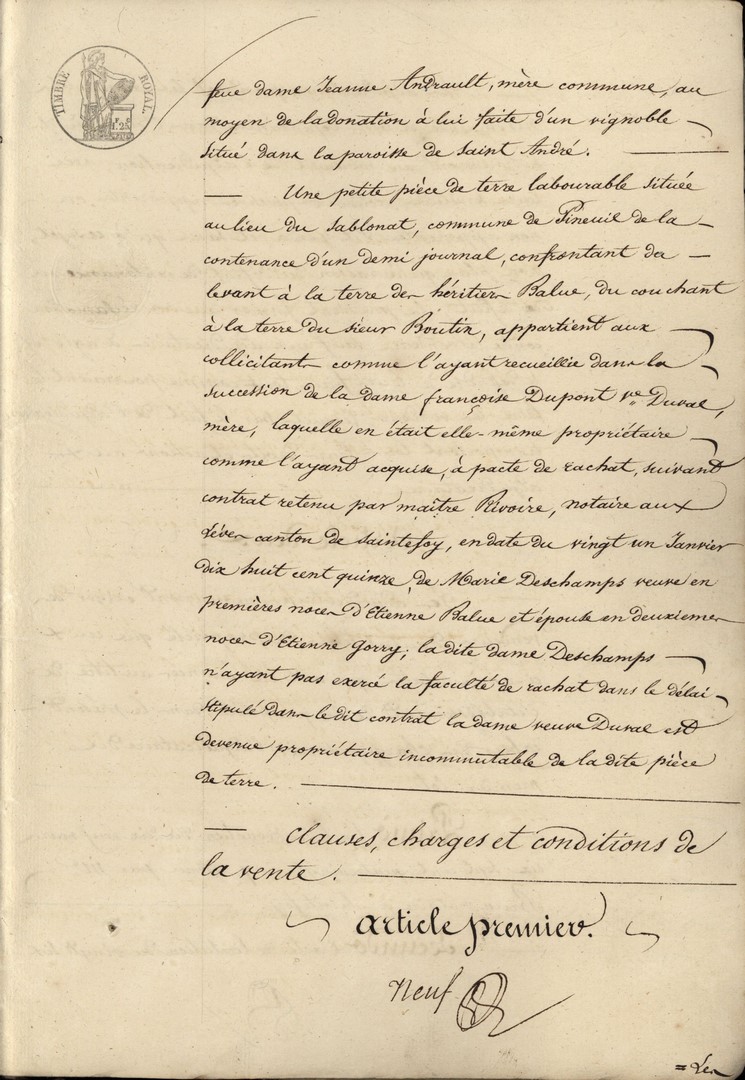 TIMBRE ROYAL
1F. 25c
feue dame Jeanne Andrault, mère commune, au
moyen de la donation à lui faite d'un vignoble
situé dans la paroisse de Saint André.
— Une petite pièce de terre labourable située
au lieu du Sablonat, commune de Pineuil de la
contenance d'un demi journal, confrontant du
levant à la terre des héritiers Balue, du couchant
à la terre du sieur Boutin, appartient aux
collicitants comme l'ayant recueillie dans la
succession de la dame françoise Dupont Ve Duval,
mère, laquelle en était elle-même propriétaire
comme l'ayant acquise, à pacte de rachat, suivant
contrat retenu par maître Rivoire, notaire aux
Lèves canton de Saintefoy, en date du vingt un Janvier
dix huit cent quinze, de Marie Deschamps veuve en
premières noces d'Etienne Balue et épouse en deuxiemes
noces d'Etienne Gorry; la dite dame Deschamps
n'ayant pas exercé la faculté de rachat dans le délai
stipulé dans le dit contrat la dame veuve Duval est
devenue propriétaire incommutable de la dite pièce
de terre.
— Clauses, charges et conditions de
la vente.
article premier.
neuf
= Les